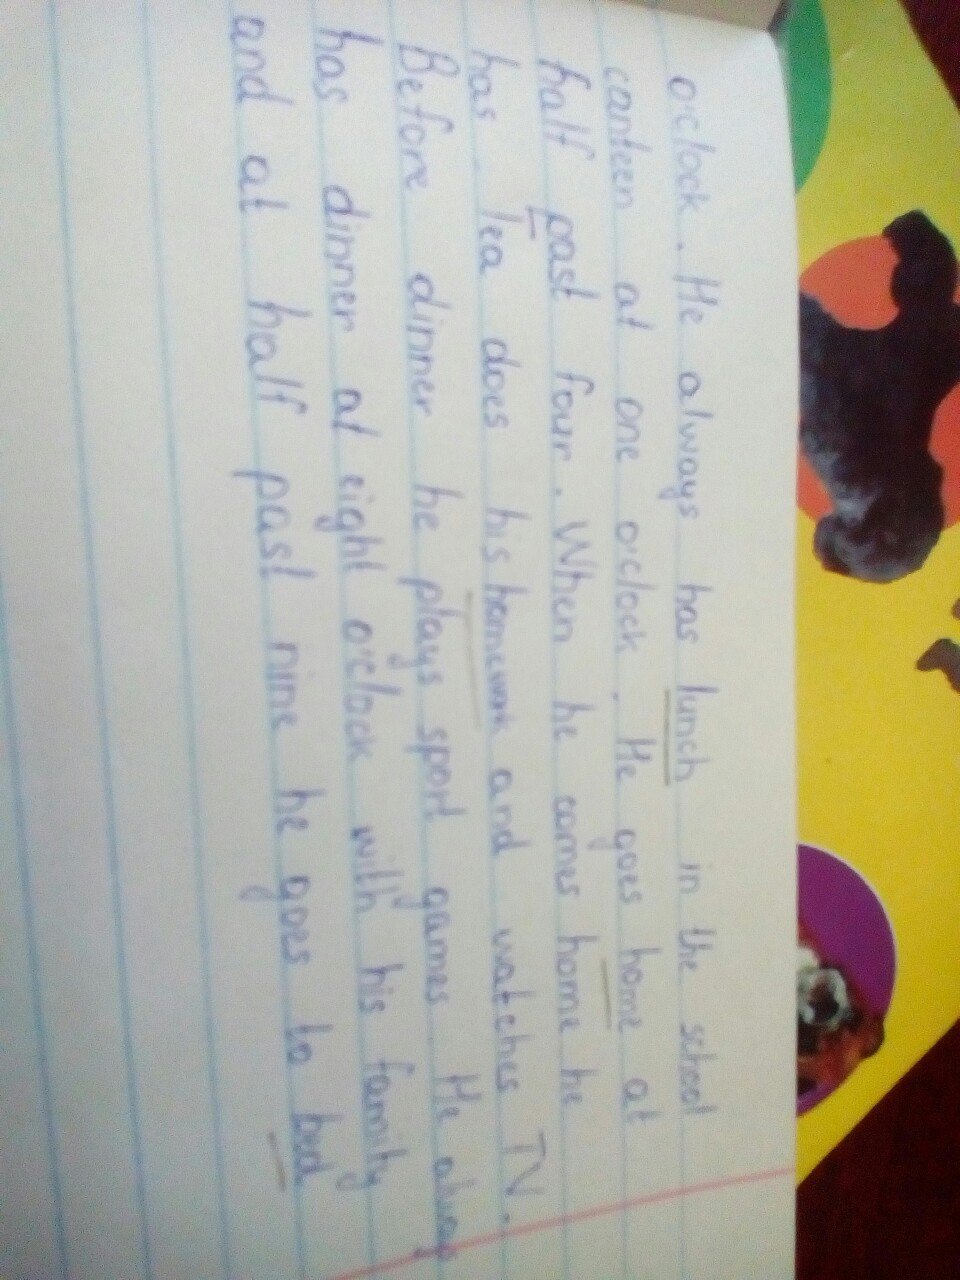 o'clock. He always has lunch in the school
canteen at one o'clock. He goes home at
half past four. When he comes home he
has tea does his homework and watches TV.
Before dinner he plays sport games He always
has dinner at eight o'clock with his family
and at half past nine he goes to bed